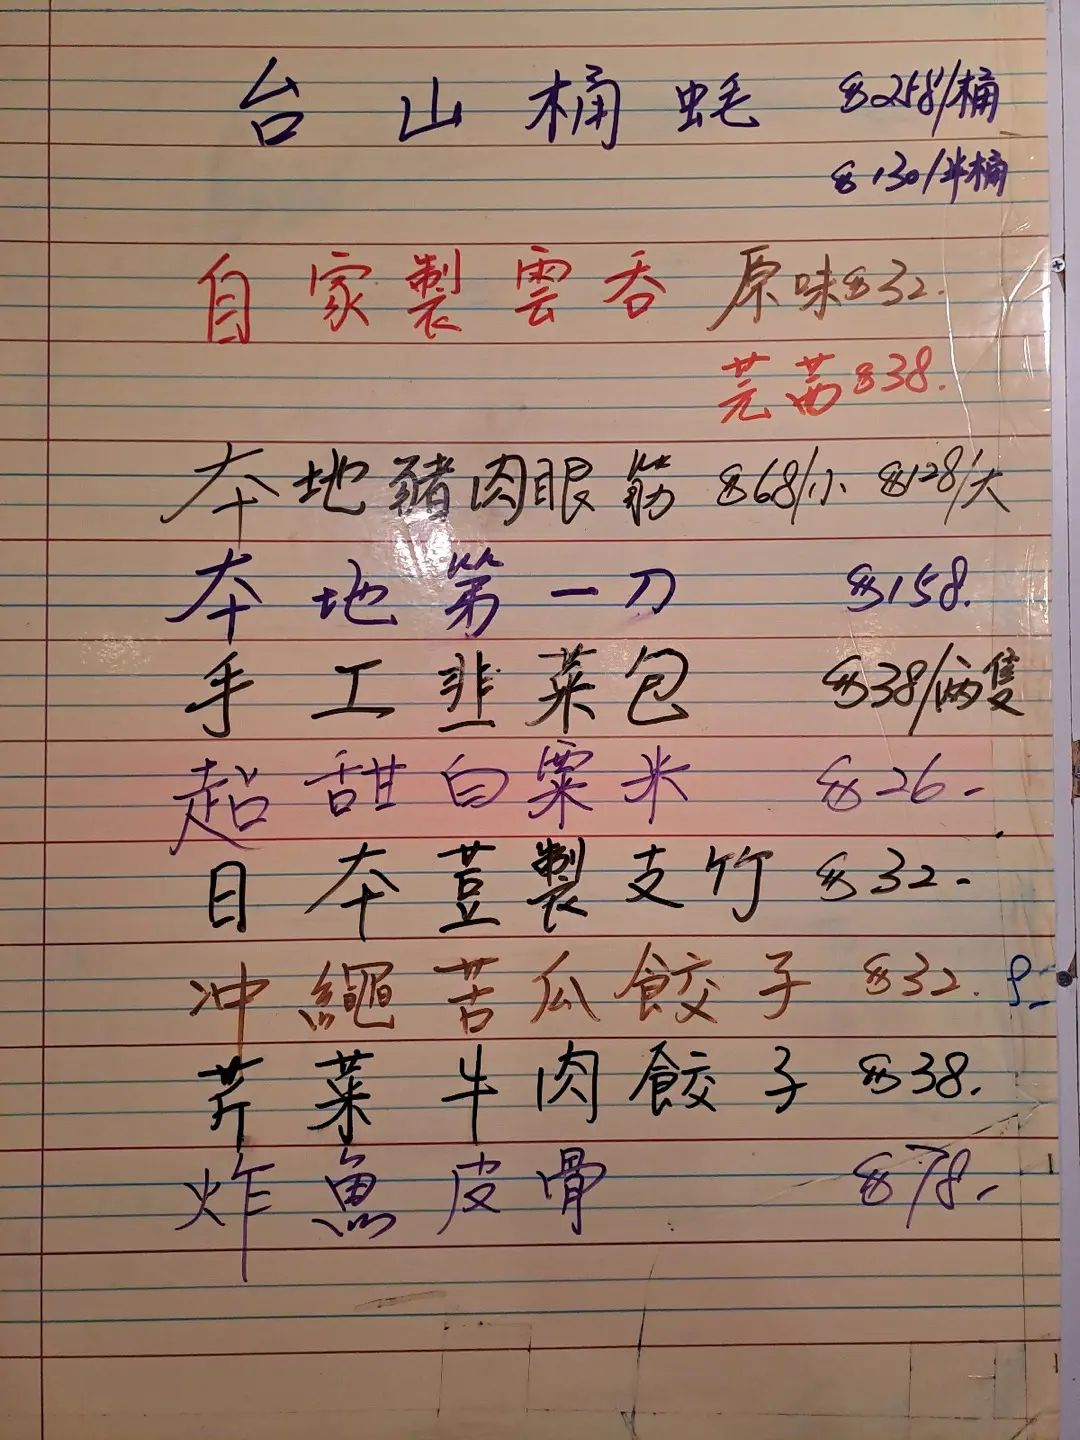 台山桶蚝 $258/桶
$130/半桶
自家製雲吞 原味$32.
芫茜$38.
本地豬肉眼筋 $68/小 $128/大
本地第一刀 $158.
手工韭菜包 $38/両隻
超甜白粟米 $26-
日本荳製支竹 $32-
冲繩苦瓜餃子 $32.
芹菜牛肉餃子 $38.
炸魚皮骨 $78-